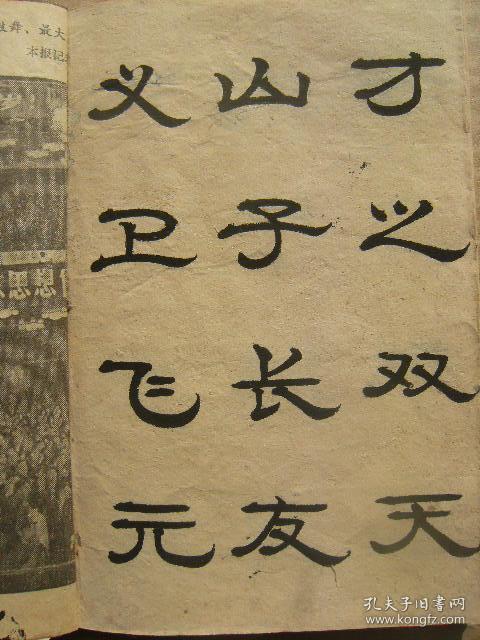 才之双天
山子长友
义卫飞元
舞，最大
本报记
思想
孔夫子旧书网
www.kongfz.com